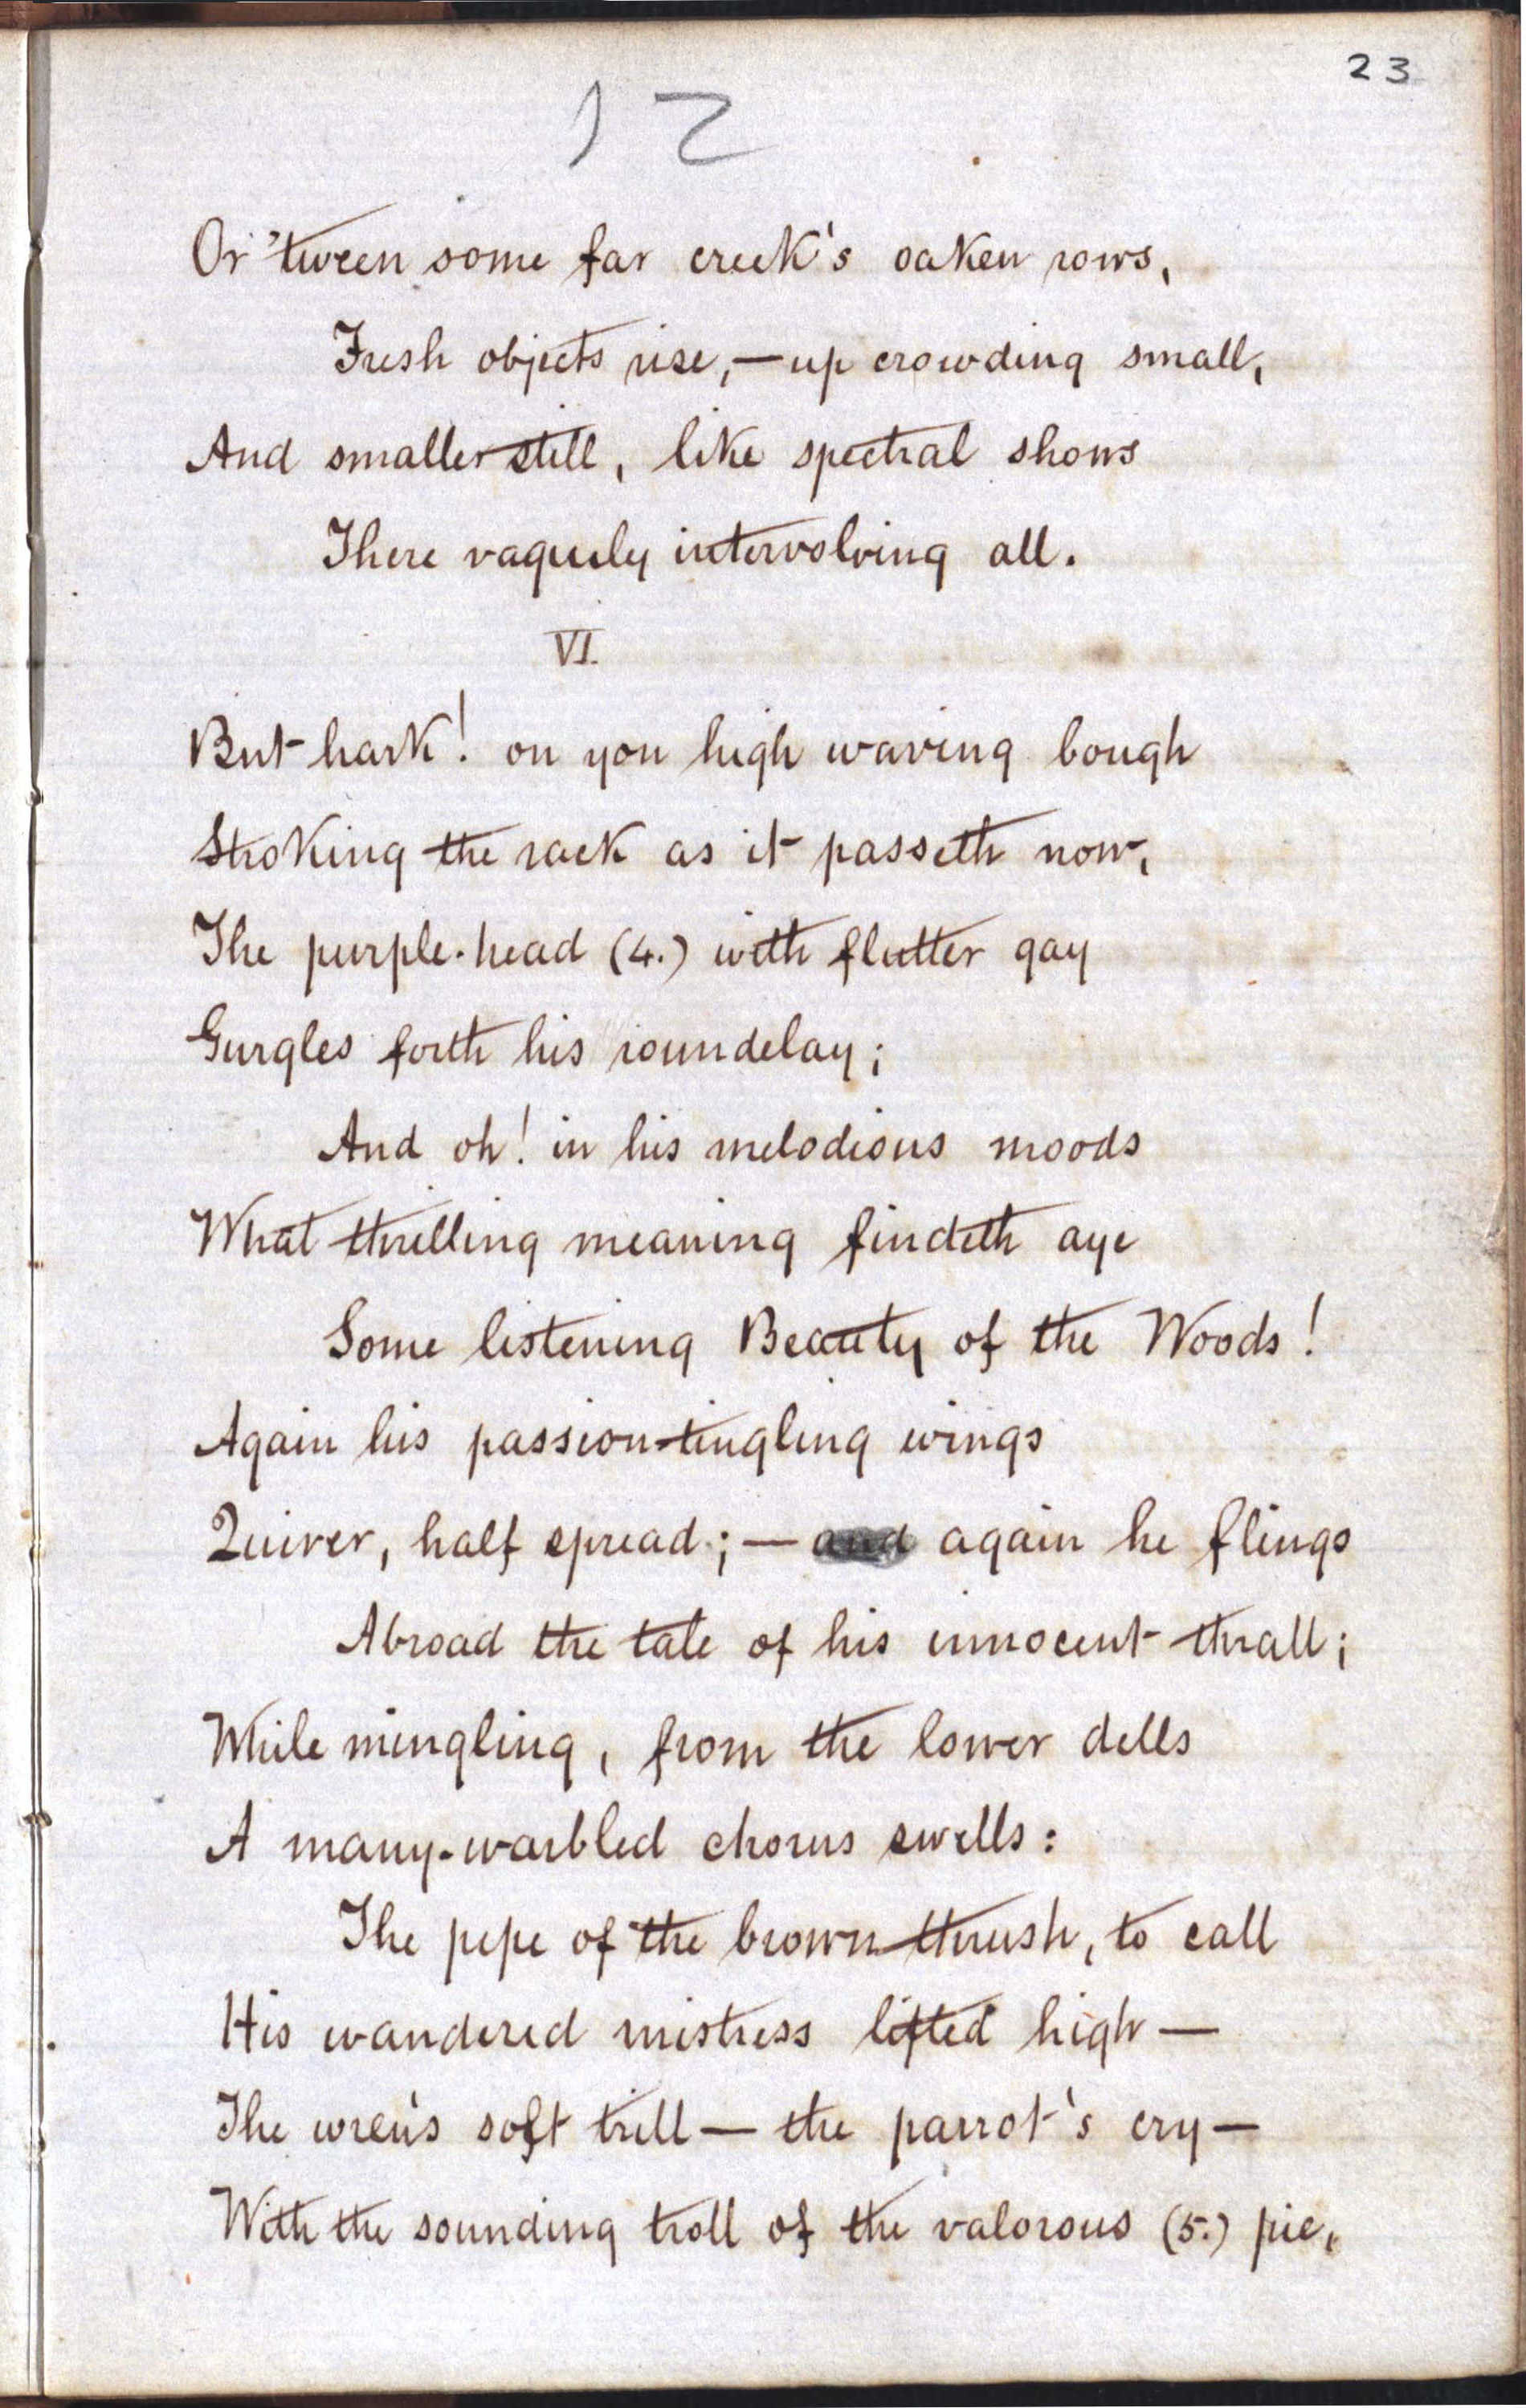 23
12
Or 'tween some far creek's oaken rows,
Fresh objects rise,—up crowding small,
And smaller still, like spectral shows
There vaguely intervolving all.
VI.
But hark! on yon high waving bough
Stroking the rack as it passeth now,
The purple-head (4.) with flutter gay
Gurgles forth his roundelay;
And oh! in his melodious moods
What thrilling meaning findeth aye
Some listening Beauty of the Woods!
Again his passion-tingling wings
Quiver, half spread;—and again he flings
Abroad the tale of his innocent thrall;
While mingling, from the lower dells
A many-warbled chorus swells:
The pipe of the brown thrush, to call
His wandered mistress lifted high—
The wren's soft trill—the parrot's cry—
With the sounding troll of the valorous (5.) pie,